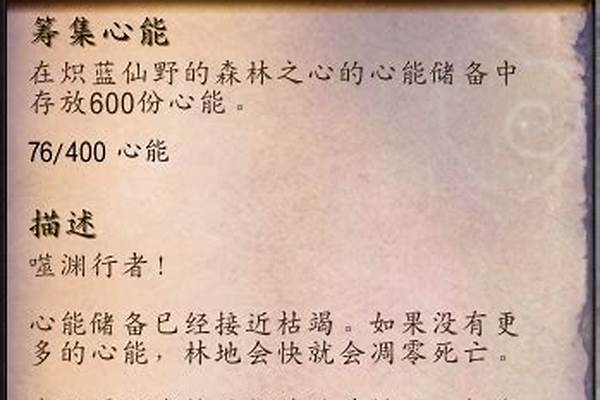 筹集心能
在炽蓝仙野的森林之心的心能储备中
存放600份心能。
76/400 心能
描述
噬渊行者！
心能储备已经接近枯竭。如果没有更
多的心能，林地会快就会凋零死亡。